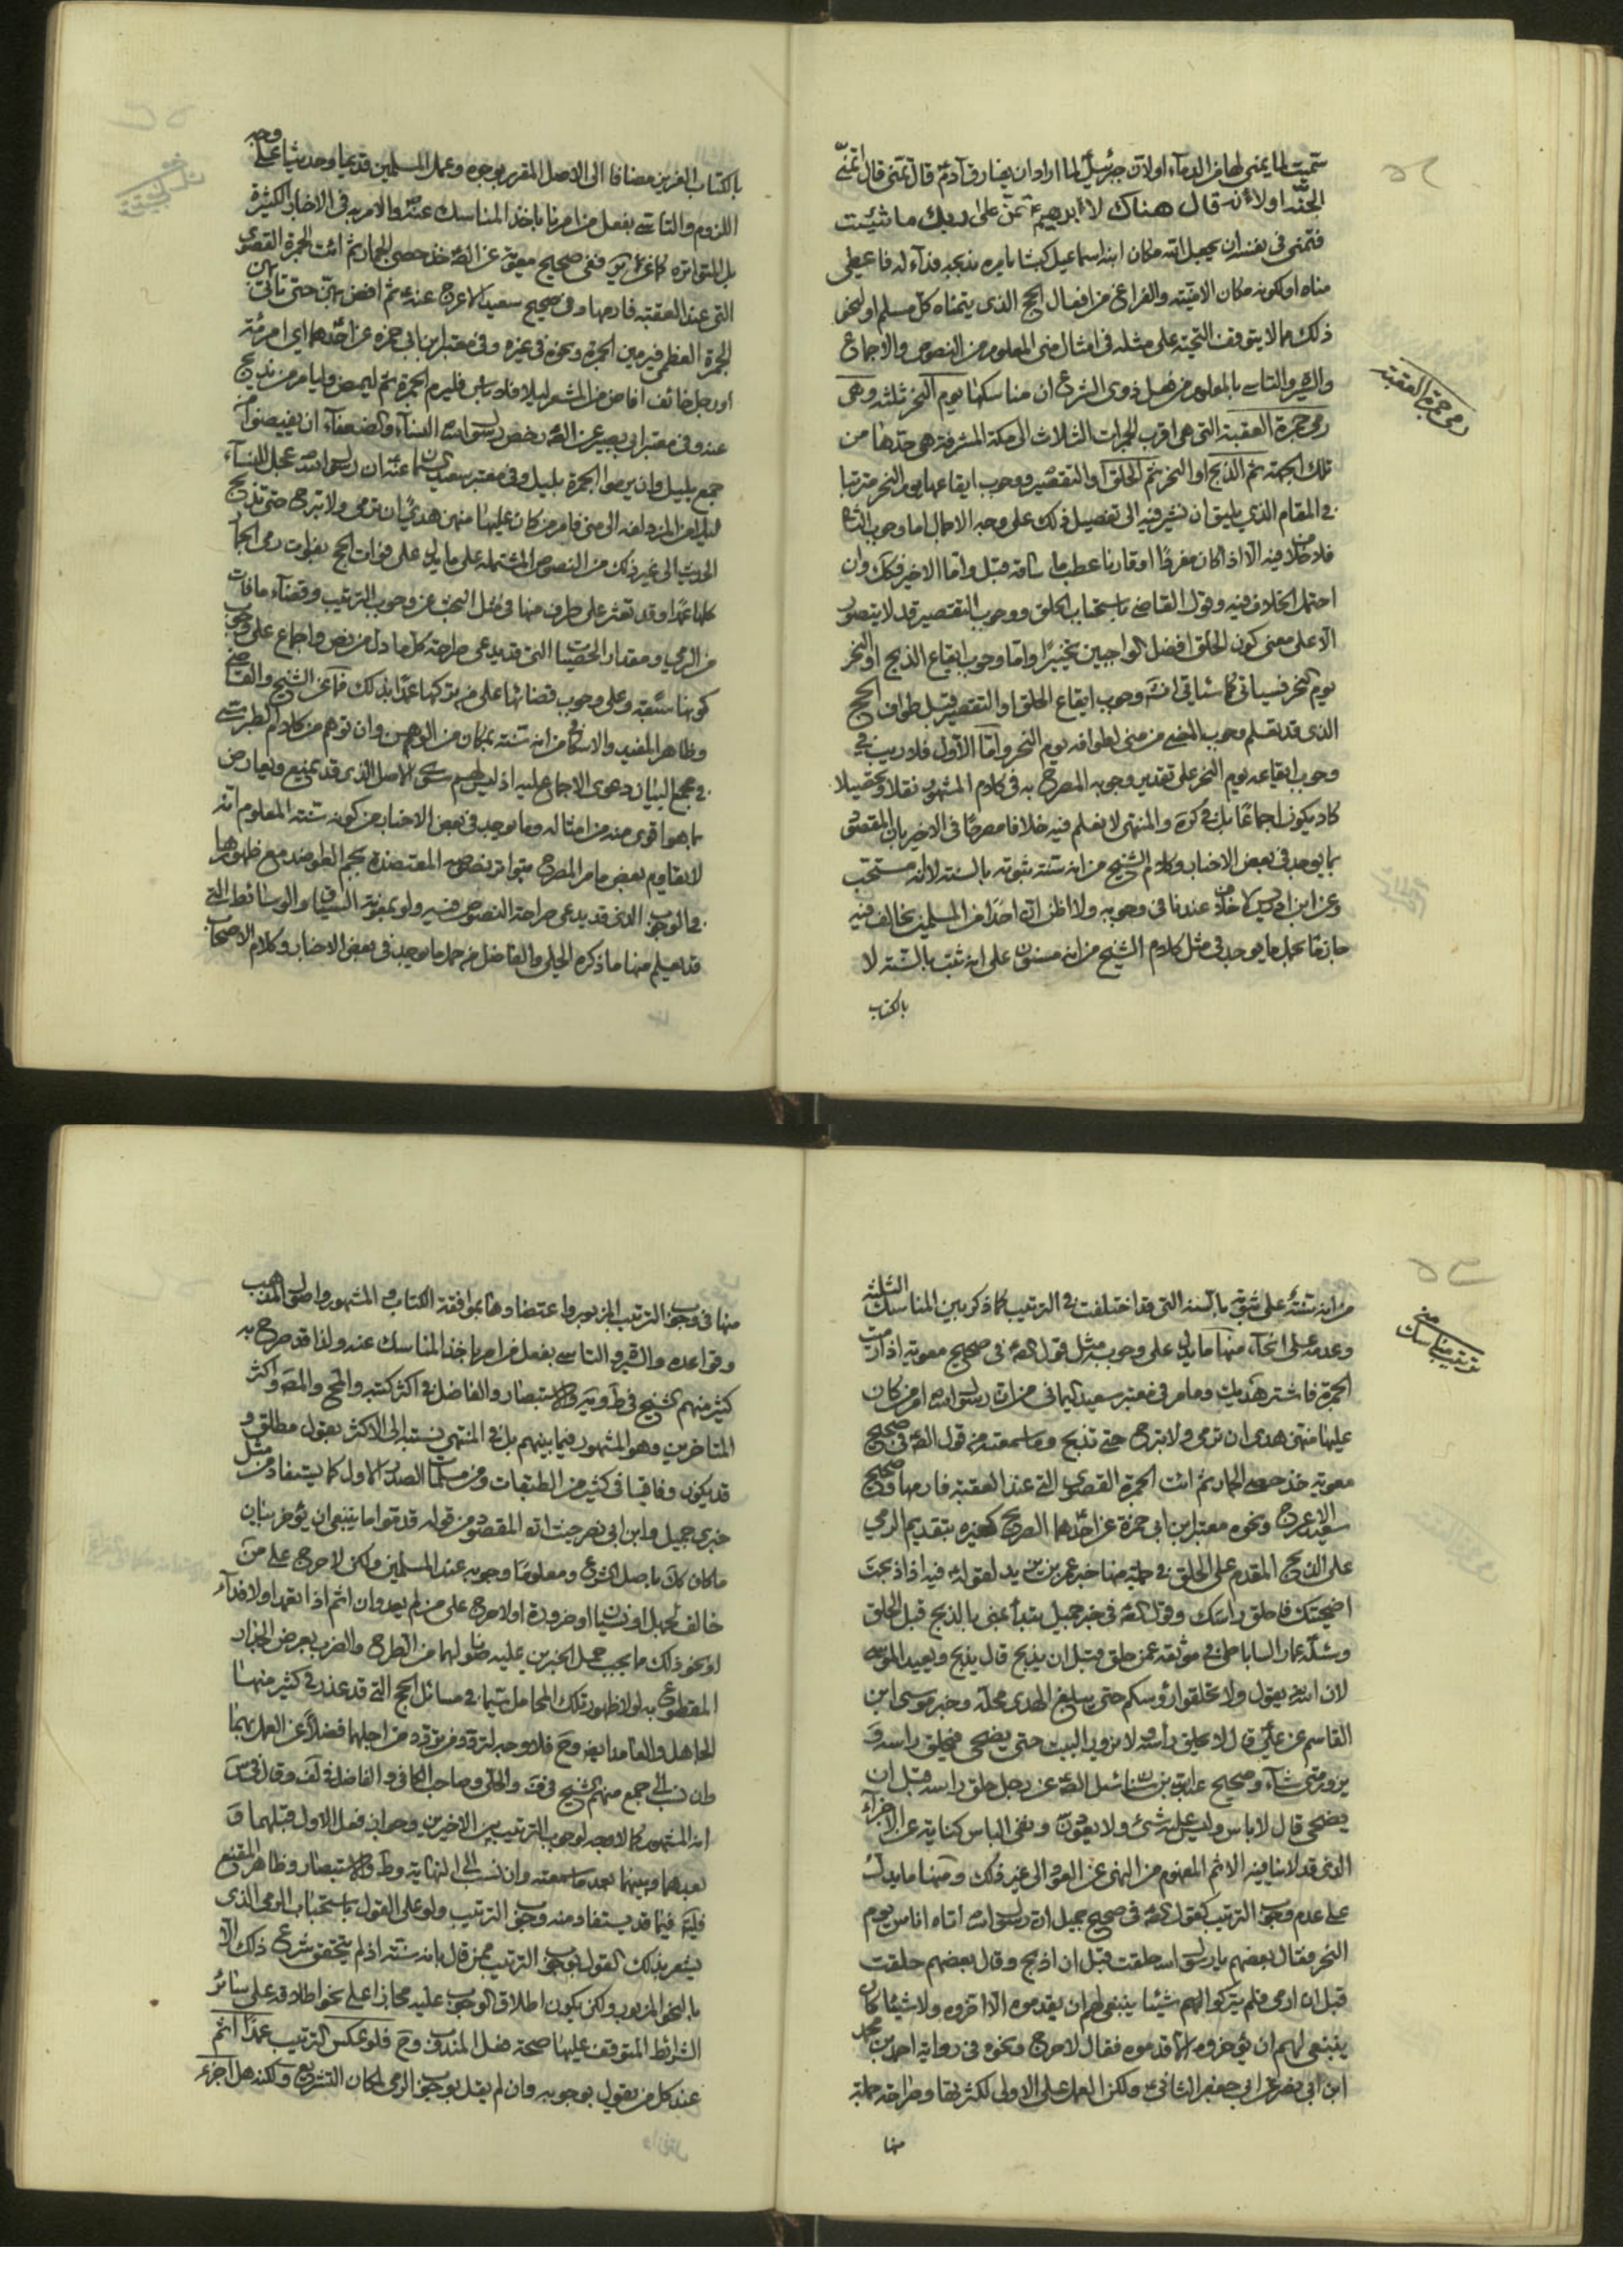 سميت لما يمنى لها من الدماء اولان جبرئيل لما اراد ان يفارق آدم قال تمن قال اتمنى
الجنة اولانه قال هناك لابرهيم تمن على ربك ما شئت
فتمنى فى نفسه ان يجعل الله مكان ابنه اسماعيل كبشا يامره بذبحه فداء له فاعطى
مناه اولكونه مكان الامنية والفراغ من افعال الحج الذى يتمناه كل مسلم او لنحو
ذلك مما لا يتوقف التحية على مثله فى امثال منى المعلوم من النصوص والاجماع
والسيرة والتاسى بالمعلوم من فعل ذوى الشرع ان مناسكها يوم النحر ثلثة وهى
رمى جمرة العقبة التى هى اقرب الجمرات الثلاث الى مكة المشرفة هى حدها من
تلك الجهة ثم الذبح او النحر ثم الحلق او التقصير ووجوب ايقاعها يوم النحر مترتبا
فى المقام الذى يليق ان نشير فيه الى تفصيل ذلك على وجه الاجمال اما وجوب الثانى
فلا خلاف فيه الا اذا كان مفردا او قارنا عطب ما ساقه قبل واما الاخير فكك وان
احتمل الخلاف فيه وقول القاضى باستحباب الحلق ووجوب التقصير قد لا يتصور
الا على معنى كون الحلق افضل الواجبين تخييرا واما وجوب ايقاع الذبح او النحر
يوم النحر فسياتى كما سياتى انشه وجوب ايقاع الحلق او التقصير قبل طواف الحج
الذى قد تعلم وجوب المضى من منى لطوافه يوم النحر واما الاول فلا ريب فى
وجوب ايقاعه يوم النحر على تقدير وجوبه المصرح به فى كلام المشهور نقلا وتحصيلا
كاد يكون اجماعا بل فى كره والمنتهى لا نعلم فيه خلافا مصرحا فى الاخير بان المقصود
بما يوجد فى بعض الاخبار وكلام الشيخ من انه سنة ثبوته بالسنة لا انه مستحب
وعن ابن ادريس لا خلاف عندنا فى وجوبه ولا اظن ان احدا من المسلمين يخالف فيه
جازما بحمل ما يوجد فى مثل كلام الشيخ من انه مسنون على انه ثبت بالسنة لا
بالكتاب
رمى جمرة العقبة
بالكتاب العزيز مضافا الى الاصل المقرر بوجوه وعمل المسلمين قديما وحديثا على وجه
اللزوم والتاسى بفعل من امرنا باخذ المناسك عنه والامر به فى الاخبار الكثيرة
بل المتواترة كما عن ئر ففى صحيح معوية عن الصه خذ حصى الجمار ثم ائت الجمرة القصوى
التى عند العقبة فارمها وفى صحيح سعيد الاعرج عنه ثم افض بهن حتى تاتى بهن
الجمرة العظمى فيرمين الجمرة ونحوه فى غيره وفى معتبر ابن ابى حمزه عن احدهما اى امرئة
او رجل خائف افاض من المشعر ليلا فلا باس فليرم الجمرة ثم ليمض وليامر من يذبح
عنه وفى معتبر ابى بصير عن الصه رخص رسول الله للنساء والضعفاء ان يفيضوا من
جمع بليل وان يرموا الجمرة بليل وفى معتبر سعيد عنه ان رسول الله عجل النساء
ليلا من المزدلفه الى منى فامر من كان عليها منهن هدى ان ترمى ولا تبرح حتى تذبح
الحديث الى غير ذلك من النصوص المشتمله على ما يدل على فوات الحج بفوات رمى الجمار
كلها عمدا وقد تعثر على طرف منها فى مثل البحث عن وجوب الترتيب وقضاء ما فات
من الرمى ومقدار الحصيات التى قد يدعى صراحة كل ما دل من نص واجماع على وجوب
كونها سبعة وعلى وجوب قضائها على من تركها عمدا بذلك فما عن الشيخ والقاضى
وظاهر المفيد والاسكافى من انه سنة بمكان من الوهن وان توهم من كلام الطبرسى
فى مجمع البيان دعوى الاجماع عليه اذ ليس لهم سوى الاصل الذى قد يمنع ويعارض
بما هو اقوى منه من امثاله وما يوجد فى بعض الاخبار من كونه سنة المعلوم انه
لا يقاوم بعض ما مر المصرح بتواتر نصوصه المعتضدة بجم الطوية مع ظهورها
فى الوجوب الذى قد يدعى صراحة النصوص فيه ولو بمعونة السياق والوسائط التى
قد يعلم منها ما ذكره الحلى والفاضل من حمل ما يوجد فى بعض الاخبار وكلام الاصحاب
من انه سنة على ثبوته بالسنة التى قد اختلفت فى الترتيب كما ذكر بين المناسك الثلثة
وعدمه على انحاء منها ما يدل على وجوبه مثل قول الصه فى صحيح معوية اذا رميت
الجمرة فاشتر هديك وما مر فى معتبر سعيد السمانى من ان رسول الله امر من كان
عليها منهن هدى ان ترمى ولا تبرح حتى تذبح وما سمعته من قول الصه فى صحيح
معوية خذ حصى الجمار ثم ائت الجمرة القصوى التى عند العقبة فارمها وصحيح
سعيد الاعرج ونحوه معتبر ابن ابى حمزة عن احدهما الصريح كغيره بتقديم الرمى
على الذبح المقدم على الحلق فى جملة منها خبر عمر بن يزيد لقوله فيه اذا ذبحت
اضحيتك فاحلق راسك وقول الصه فى خبر جميل يبدأ بمنى بالذبح قبل الحلق
وسئله عمار الساباطى فى موثقه عمن حلق قبل ان يذبح قال يذبح ويعيد الموسى
لان الله يقول ولا تحلقوا رؤسكم حتى يبلغ الهدى محله وخبر موسى ابن
القاسم عن على قال لا يحلق رأسه ولا يزور البيت حتى يضحى فيحلق راسه و
يزور متى شاء وصحيح عبد الله بن سنان سئل الصه عن رجل حلق راسه قبل ان
يضحى قال لا باس وليس عليه شئ ولا يعودن ونفى الباس كناية عن الاجزاء
الذى قد لا ينافيه الاثم المفهوم من النهى عن العود الى غير ذلك ومنها ما يدل
على عدم وجوب الترتيب كقول الصه فى صحيح جميل ان رسول الله اتاه اناس يوم
النحر فقال بعضهم يا رسول الله حلقت قبل ان اذبح وقال بعضهم حلقت
قبل ان ارمى فلم يتركوا لهم شيئا ينبغى لهم ان يقدموه الا اخروه ولا شيئا كان
ينبغى لهم ان يؤخروه الا قدموه فقال لا حرج ونحوه فى رواية احمد بن محمد
ابن ابى نصر عن ابى جعفر الثانى ولكن العمل على الاولى لكثرتها وصراحة جملة
منها
ترتيب مناسك منى
منها فى وجوب الترتيب المزبور واعتضادها بموافقة الكتاب والمشهور واصول المذهب
وقواعده والسيرة والتاسى بفعل من امرنا باخذ المناسك عنه ولذا قد صرح به
كثير منهم الشيخ فى ط ويه والاستبصار والفاضل فى اكثر كتبه والمحقق والمصه واكثر
المتاخرين وهو المشهور فيما بينهم بل فى المنتهى نسبته الى الاكثر بقول مطلق و
قد يكون وفاقيا فى كثير من الطبقات ومن مسلمات الصدر الاول كما يستفاد من مثل
خبرى جميل وابن ابى نصر حيث انه المقصود من قوله قدموا ما ينبغى ان يؤخر ببيان
ما كان كك باصل الشرع ومعلوما وجوبه عند المسلمين ولكن لا حرج على من
خالف لجهل او نسيان او ضرورة او لا حرج على من لم يعد وان اثم اذا تعمد او لا فداء
او نحو ذلك ما يجب حمل الخبرين عليه صونا لهما من الطرح والضرب بعرض الجدار
المقطوع به لولا ظهور تلك المحامل سيما فى مسائل الحج التى قد عذر فى كثير منها
الجاهل والعامد ايضا وح فلا وجه لتردد من تردد من اجلهما فضلا عن العمل بهما
وان نسب الى جمع منهم الشيخ فى ف والحلى وصاحب الكافى والفاضل فى لف وقال فى س
انه المشهور كما لا وجه لوجوب الترتيب بين الاخيرين وجواز فعل الاول قبلهما و
بعدهما وبينهما بعد ما سمعته وان نسب الى النهاية وط والاستبصار وظاهر المقنع
فيه فيما قد يستفاد منه وجوب الترتيب ولو على القول باستحباب الرمى الذى
يشعر بذلك القول بوجوب الترتيب ممن قال بانه سنة اذ لم يتحقق شرع ذلك الا
بالنحو المزبور ولكن يكون اطلاق الوجوب عليه مجازا على نحو اطلاقه على سائر
الشرائط المتوقف عليها صحة فعل المندوب وح فلو عكس الترتيب عمدا اثم
عند كل من يقول بوجوبه وان لم يقل بوجوب الرمى لمكان التشريع ولكنه هل اجزء